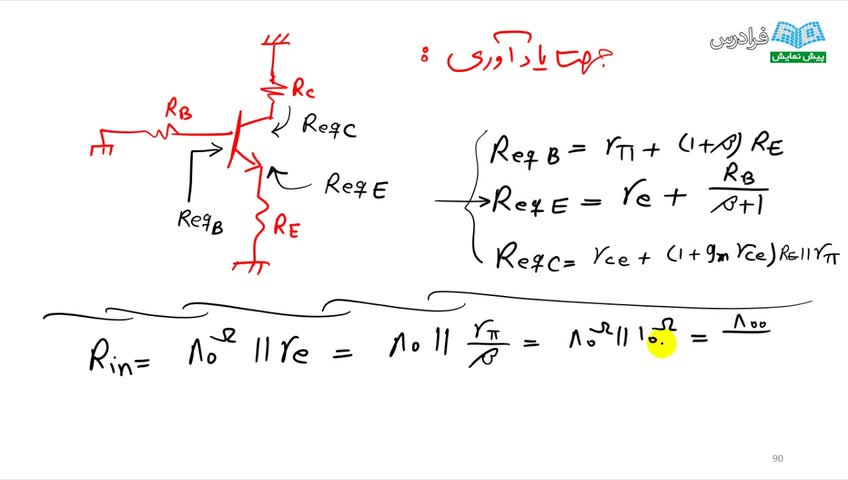 فرادرس
پیش نمایش
جهت یادآوری :
RC
RB
ReqC
ReqE
ReqB
RE
ReqB = rπ + (1+β) RE
ReqE = re + RB/(β+1)
ReqC = rce + (1+gm rce) RE||rπ
Rin = ۸۰Ω || re = ۸۰ || rπ/β = ۸۰Ω || ۱۰Ω = ۸۰۰
90